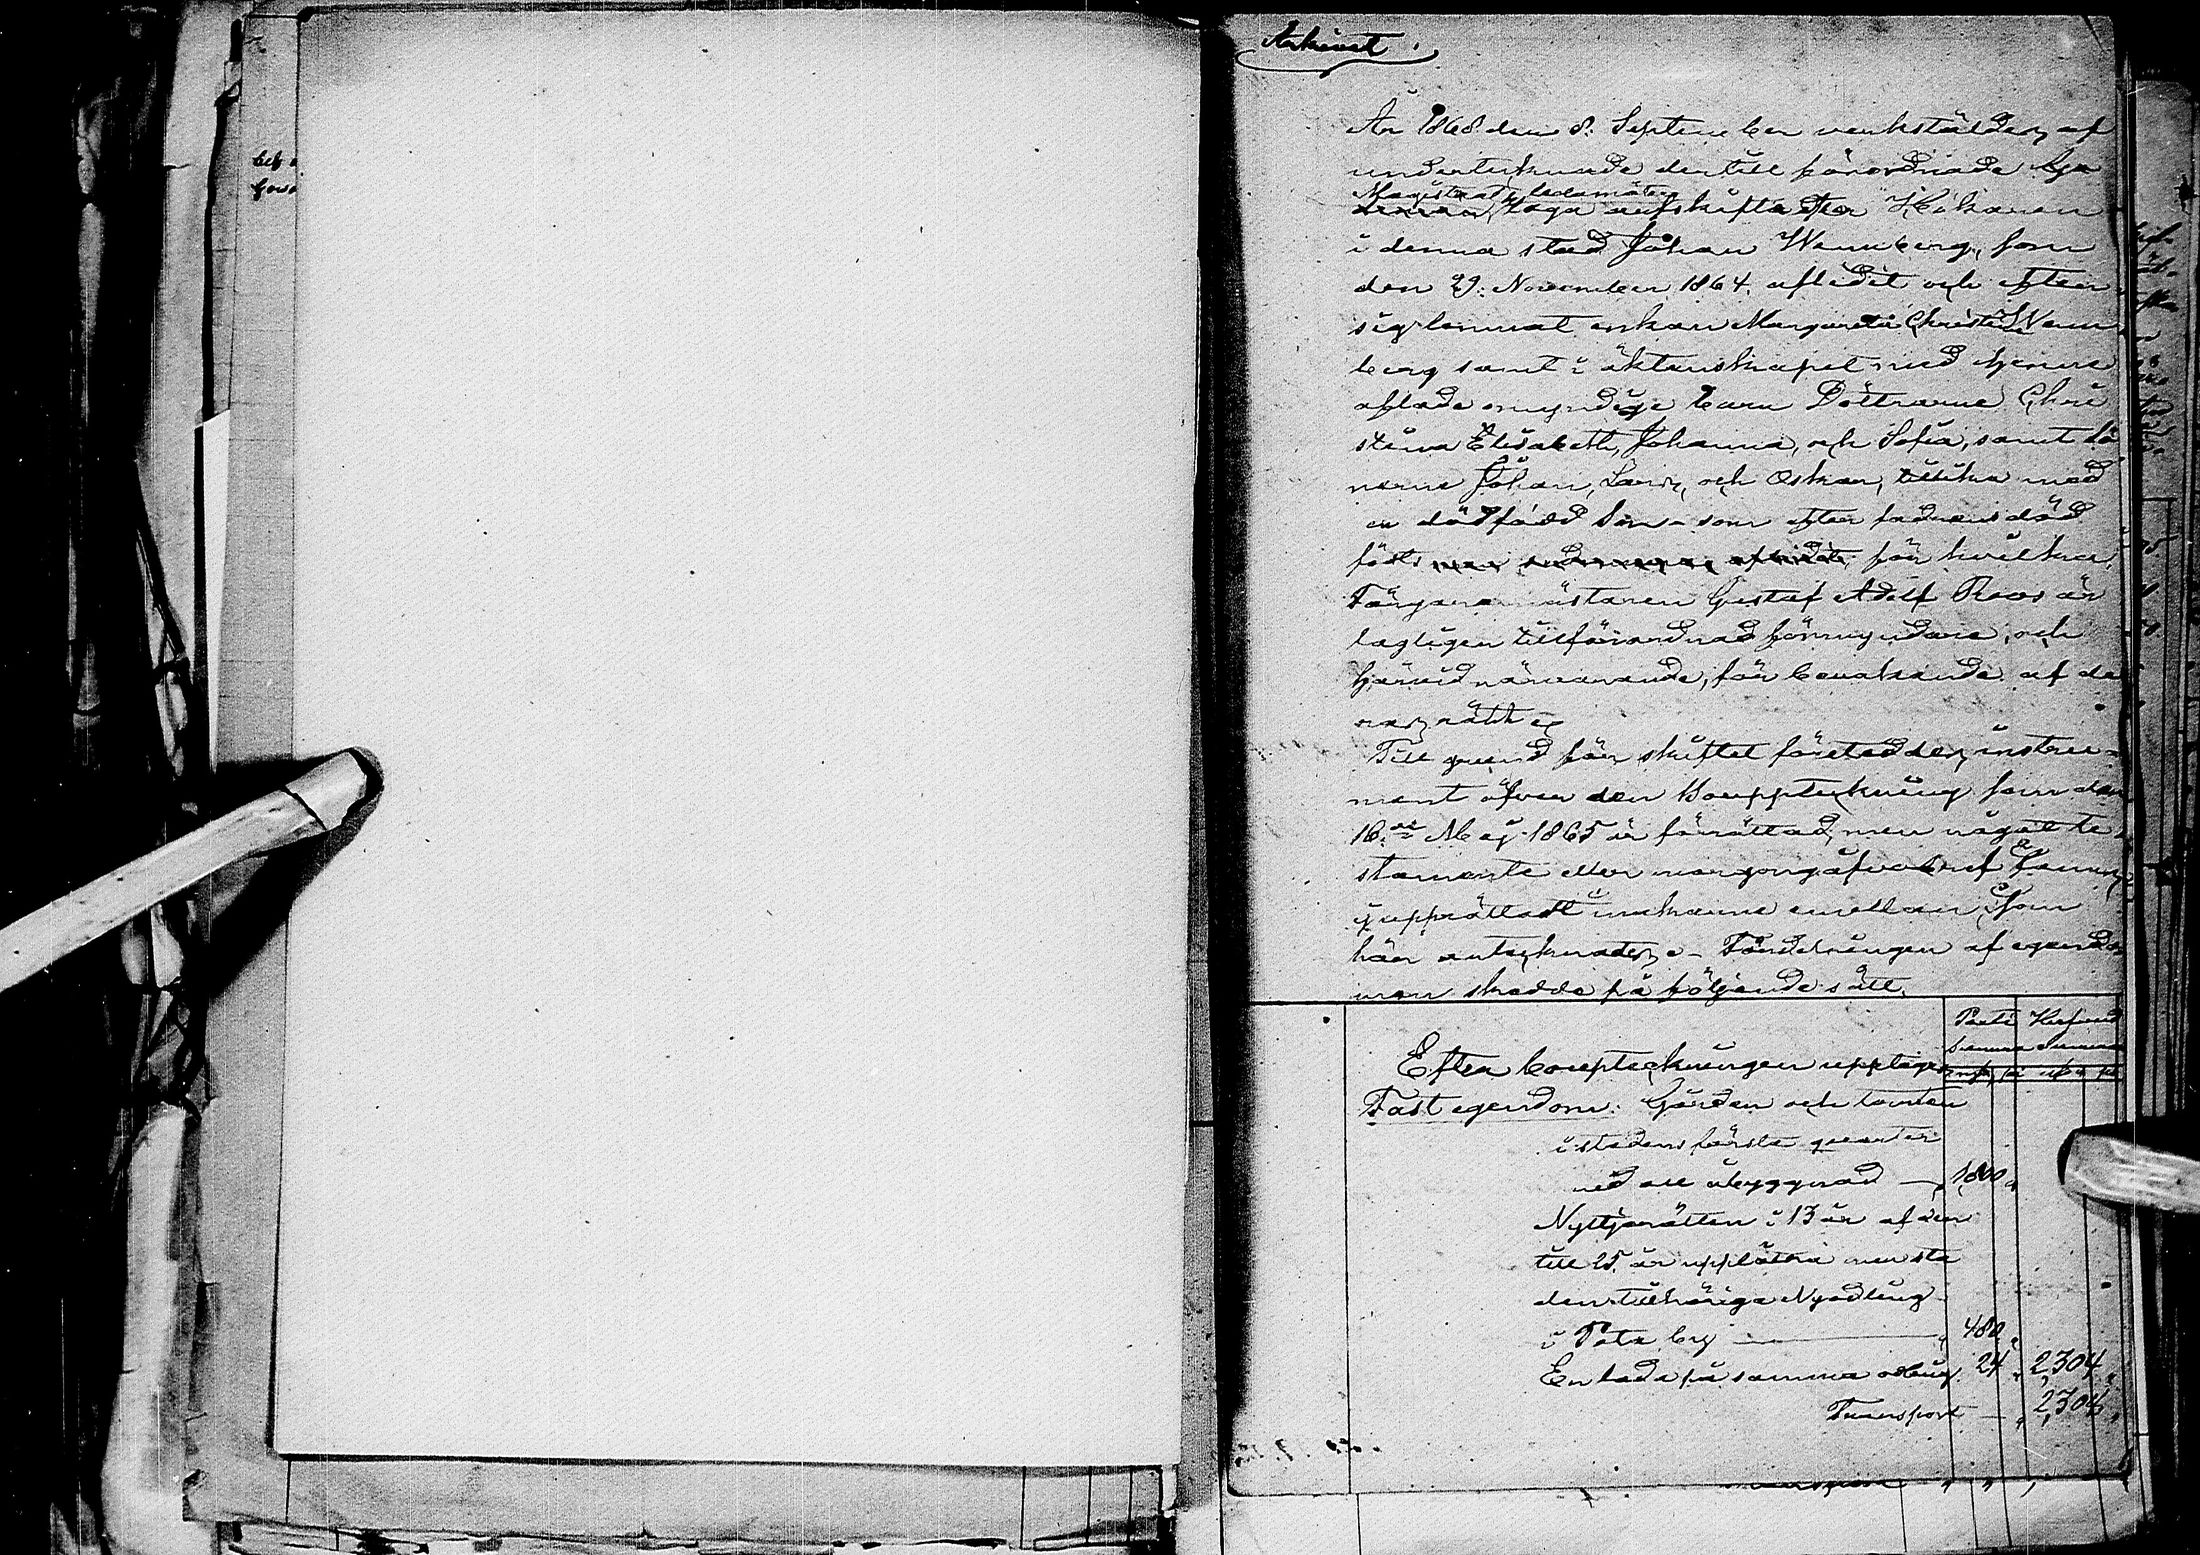 Arkivet.
År 1868 den 8. September verkstäldes af
undertecknade dertill förordnade
Magistrads ledamöter laga arfskifte efter
i denna stad Johan Wennberg, som
den 29. November 1864 aflidit och efter
sig lemnat enkan Margareta Christina Wenn
berg samt i äktenskapet med henne
aflade omyndige barn Döttrarne Chri
stina Elisabeth, Johanna, och Sofia, samt sö
nerne Johan, Lars, och Oskar, tillika med
en dödfödd Son som efter fadrens död
födts för hvilka
Färgaremästaren Gustaf Adolf Roos är
lagligen tillförordnad förmyndare, och
härvid närvarande, för bevakande af de
ras rätt
Till grund för skiftet företeddes instru-
ment öfver den Bouppteckning som den
16.de Maj 1865 är förrättad, men något te-
stamente eller morgongåfvobref fanns
ej upprättadt makarne emellan; Som
här antecknades. Fördelningen af egendo-
men skedde på följande sätt.
Parti Hufvud
Summa Summa
Efter bouppteckningen upptages
Fast egendom: Gården och tomten
i stadens första qvarter
med all åbyggnad — 1800
Nyttjorätten i 13 år af den
till 25 år upplåtna men sta
den tillhöriga Nyodling
i — 480
En lada på samma odling 24 2,304
Transport — 2,304